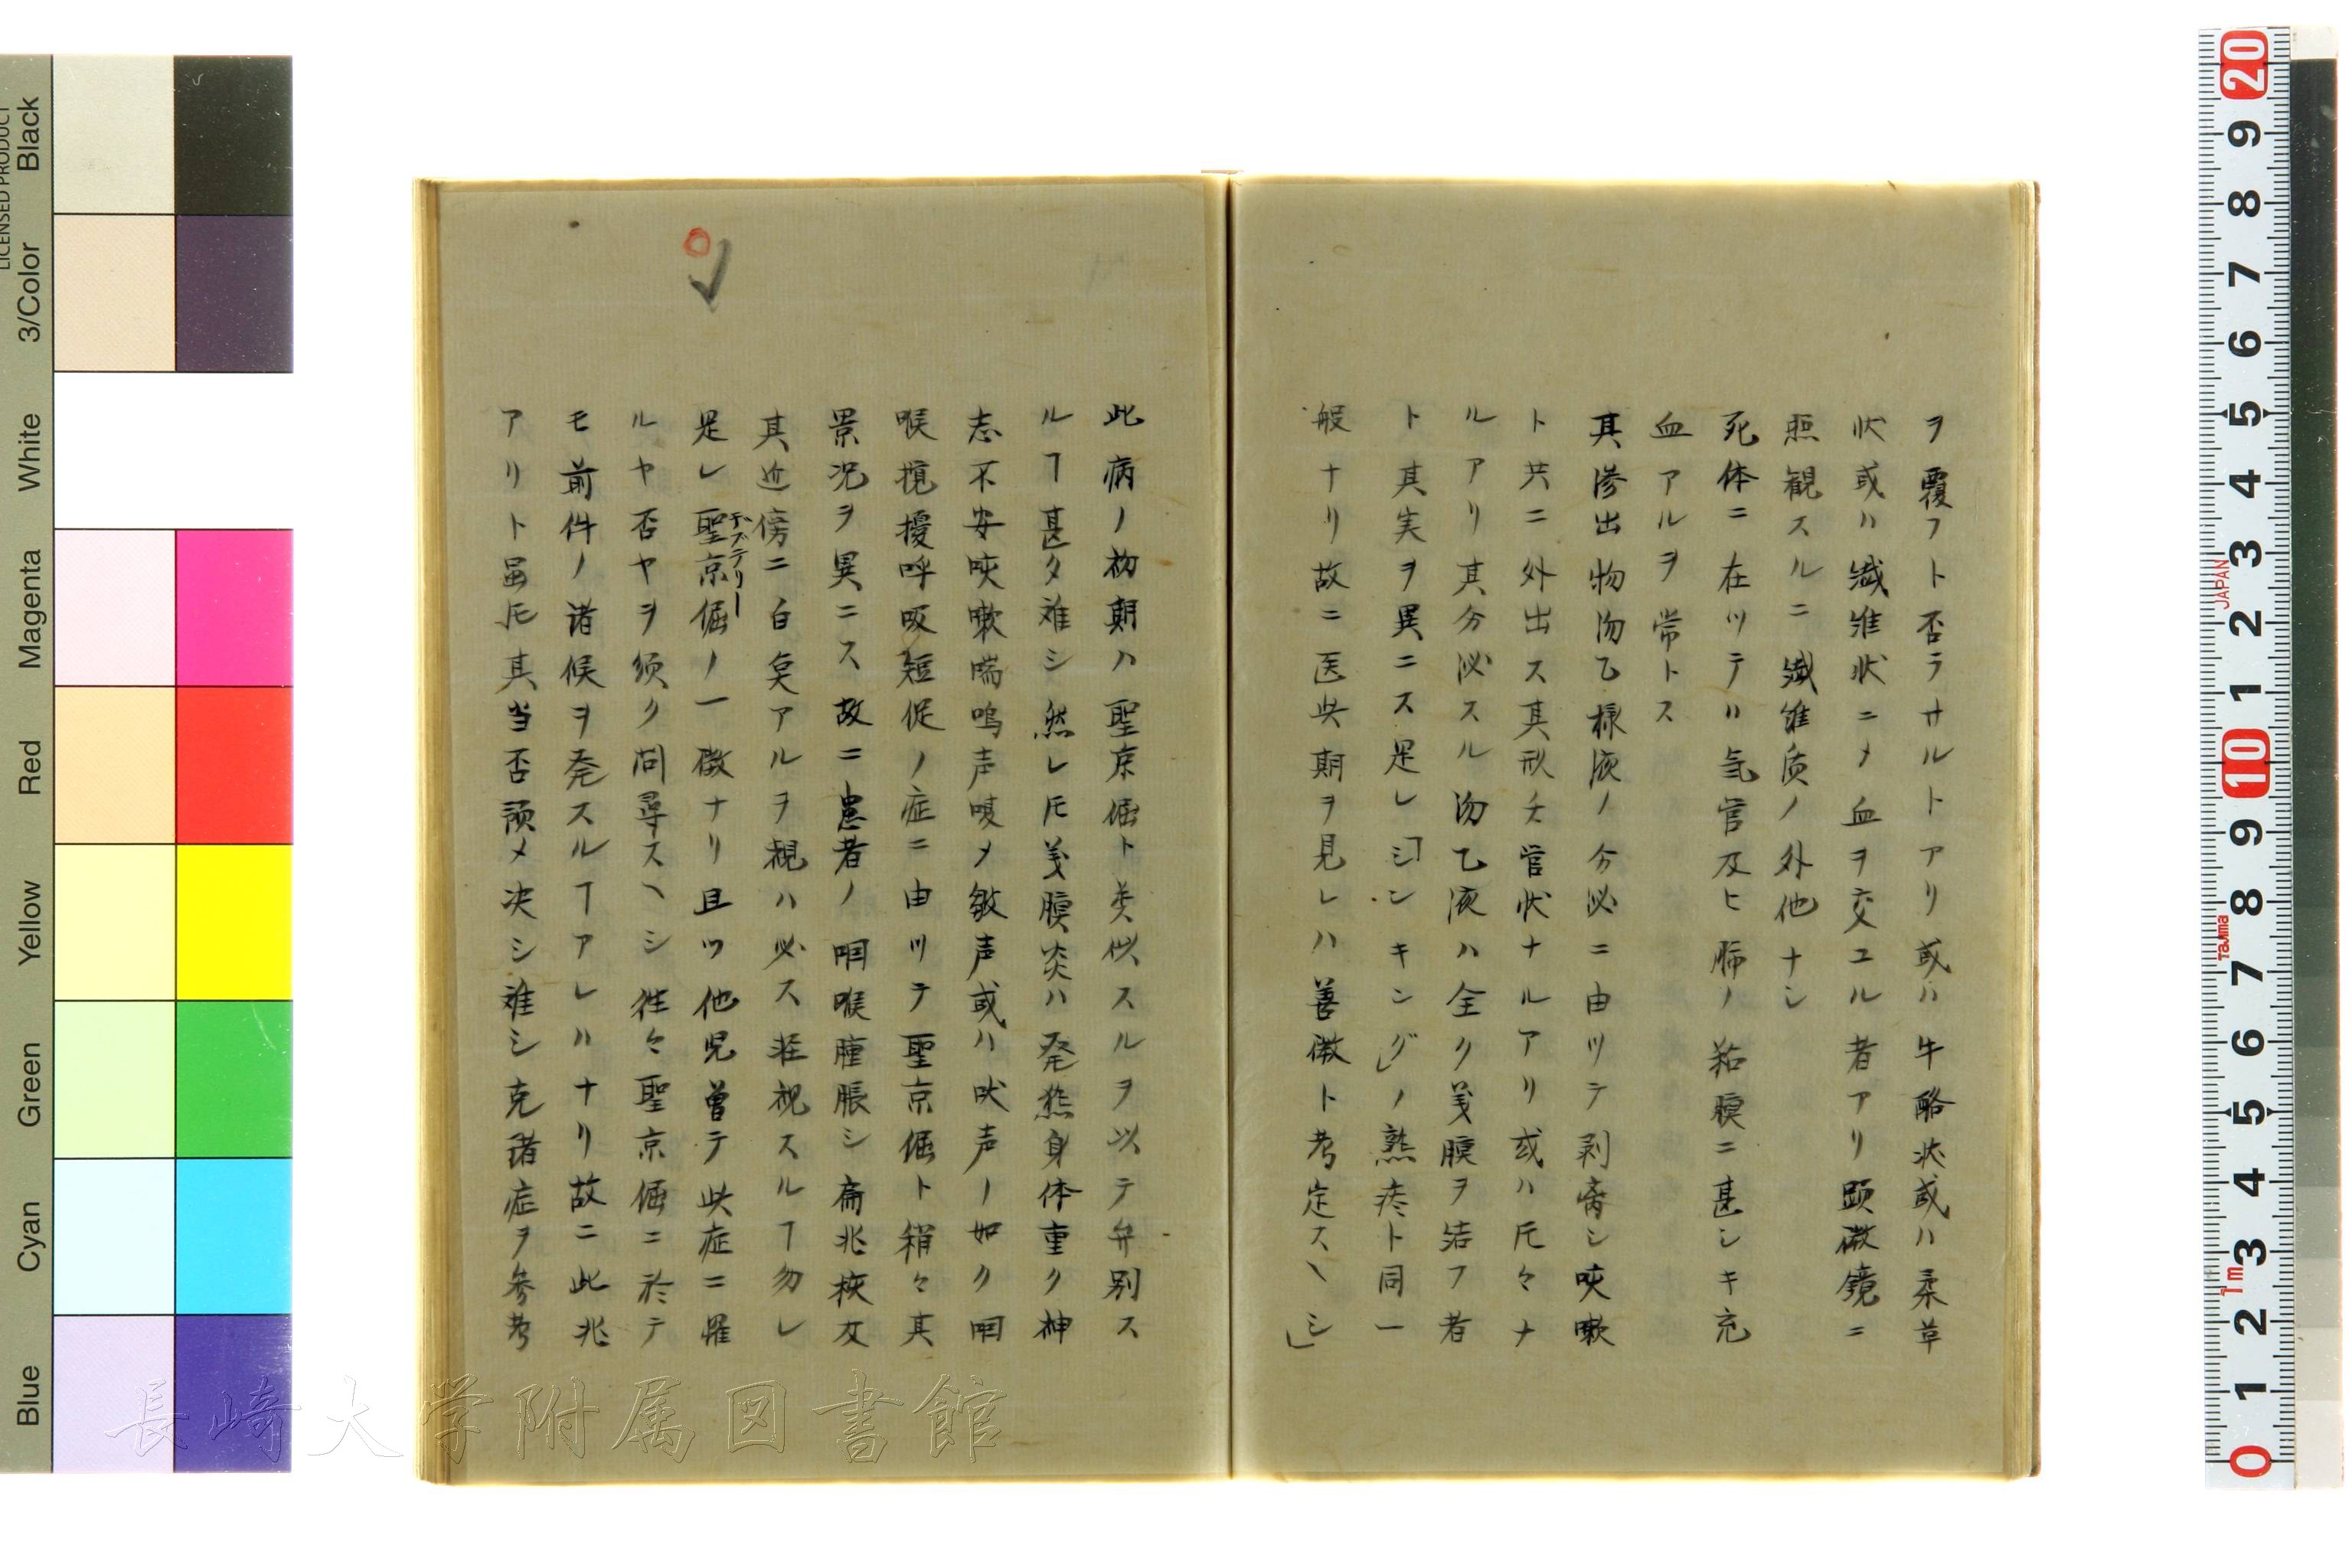 ヲ覆フト否ラサルトアリ或ハ牛酪状或ハ柔草
状或ハ纖維状ニメ血ヲ交ユル者アリ顕微鏡ニ
照観スルニ纖維质ノ外他ナシ
死体ニ在ツテハ気管及ヒ肺ノ粘膜ニ甚シキ充
血アルヲ常トス
其滲出物沕乙様液ノ分泌ニ由ツテ剥脔シ咳嗽
ト共ニ外出ス其形チ管状ナルアリ或ハ片々ナ
ルアリ其分泌スル沕乙液ハ全ク義膜ヲ结フ者
ト其実ヲ異ニス是レ「シンキング」ノ熱疼ト同一
般ナリ故ニ医此期ヲ見レハ善徴ト考定スヘシ」
此病ノ初期ハ聖京倔ト类似スルヲ以テ弁別ス
ルヿ甚タ难シ然レ𪜈義膜炎ハ発熱身体重ク神
志不安咳嗽喘鳴声嗄メ皴声或ハ吠声ノ如ク咽
喉攪擾呼吸短促ノ症ニ由ツテ聖京倔ト稍々其
景况ヲ異ニス故ニ患者ノ咽喉腫脹シ扁兆挾及
其近傍ニ白㚑アルヲ視ハ必ス荘視スルヿ勿レ
是レ聖京倔ノ一徴ナリ且ツ他児曽テ此症ニ罹
ヒステリー
ルヤ否ヤヲ须ク问尋スヘシ往々聖京倔ニ於テ
モ前件ノ诸候ヲ発スルヿアレハナリ故ニ此兆
アリト虽𪜈其当否預メ决シ难シ克诸症ヲ参考
LICENSED PRODUCT
Black
3/Color
White
Magenta
Red
Yellow
Green
Cyan
Blue
長崎大学附属図書館
20
9
8
7
6
5
4
3
2
1
10
9
8
7
6
5
4
3
2
1
0
JAPAN
Tajima
1m